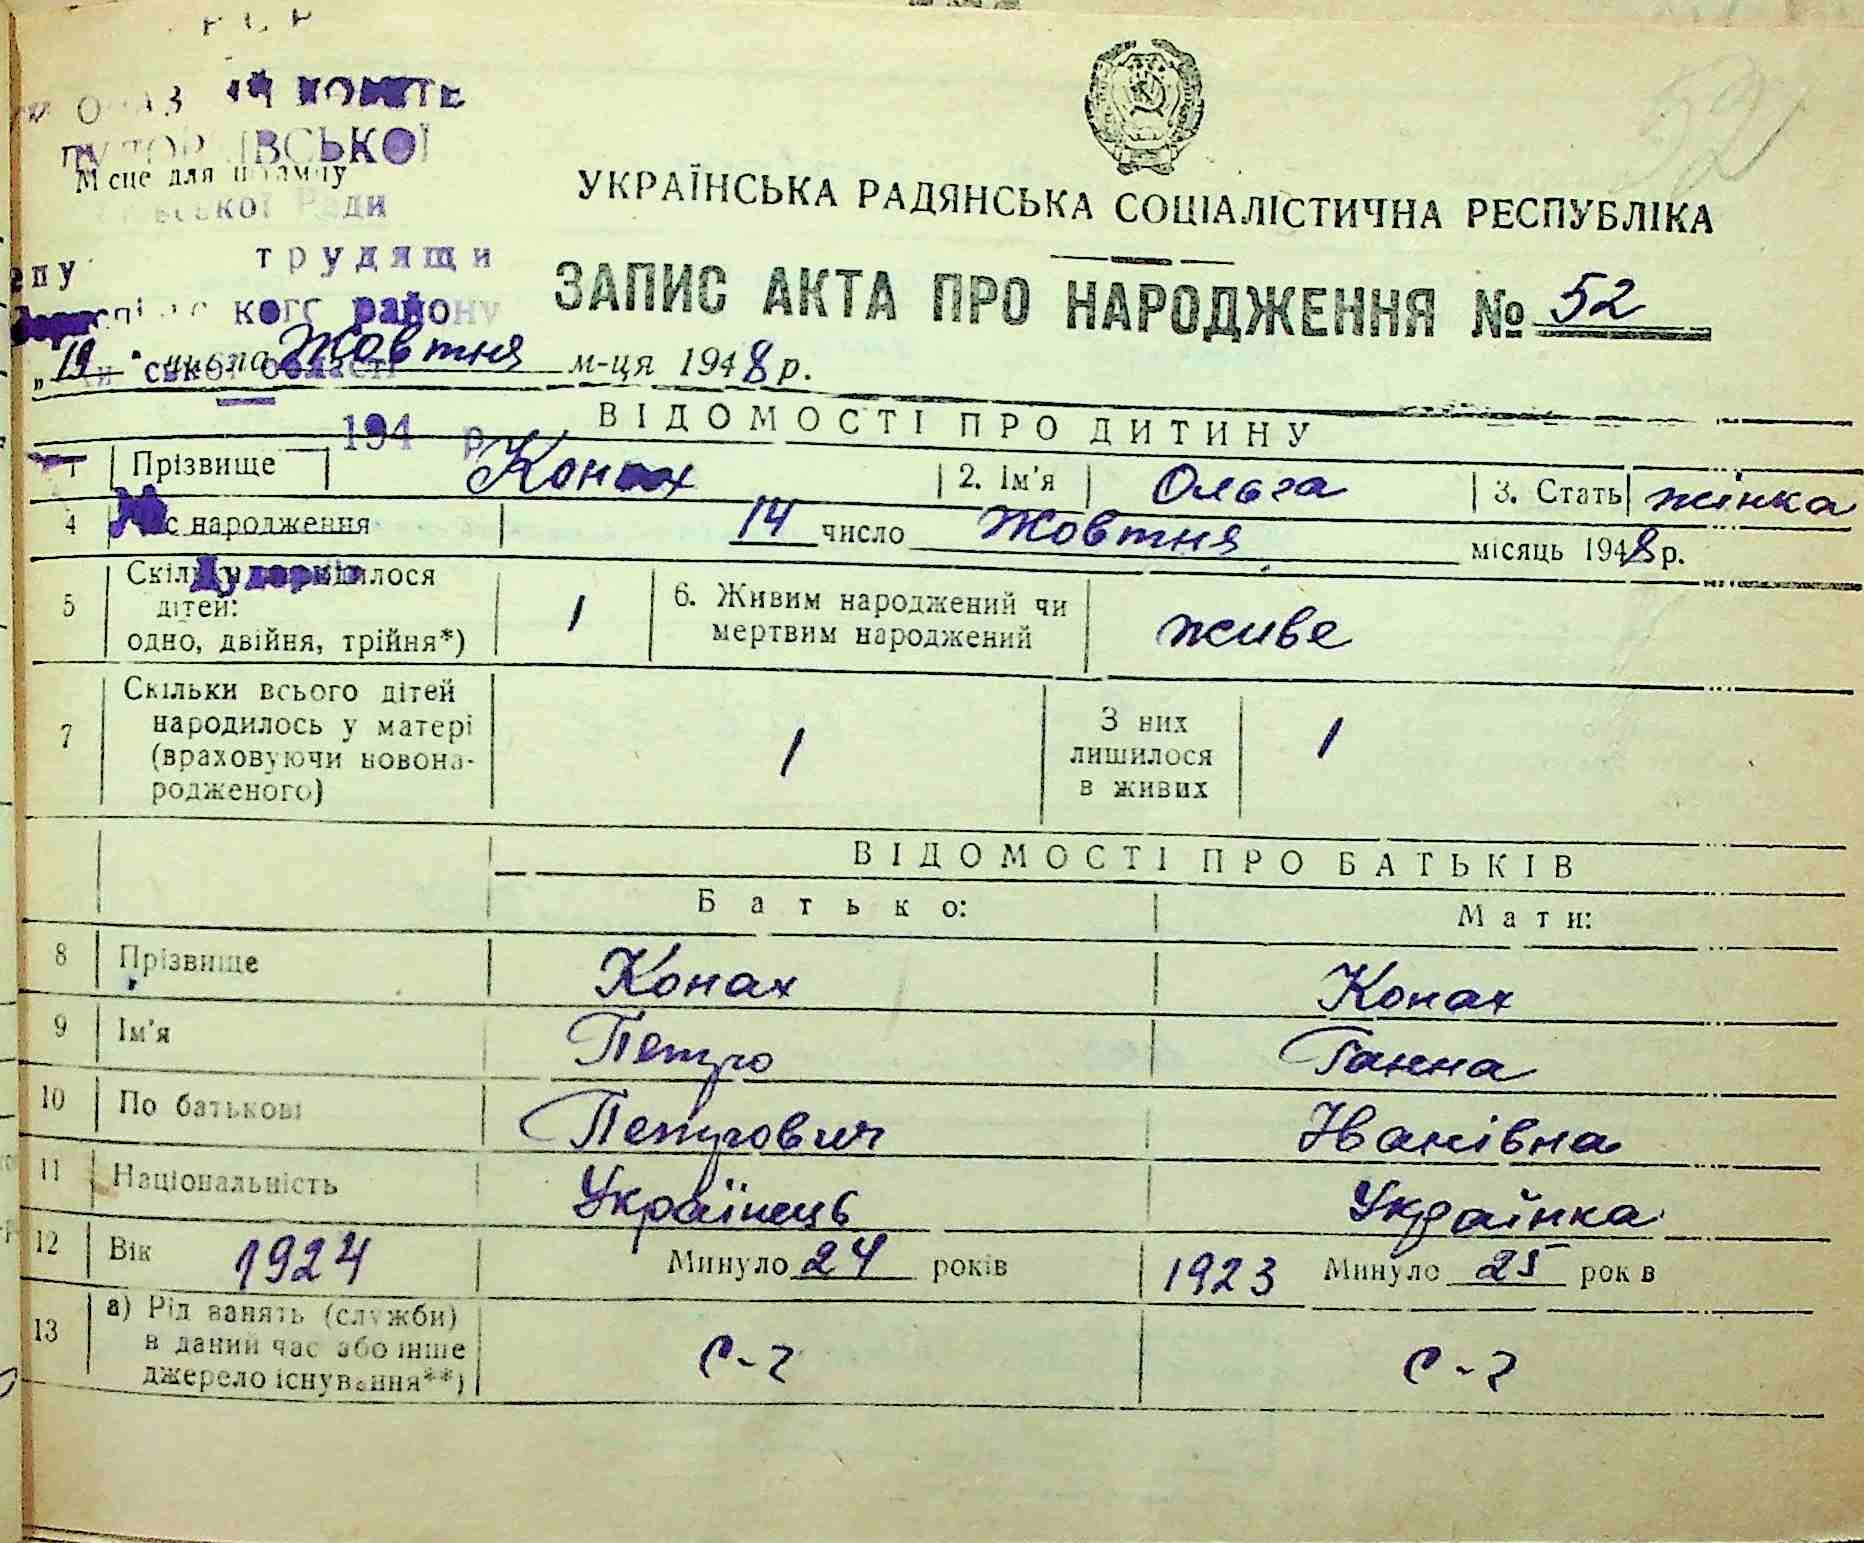 52
ЬКОЇ
Місце для штампу
ької Ради
трудящи
кого району
УКРАЇНСЬКА РАДЯНСЬКА СОЦІАЛІСТИЧНА РЕСПУБЛІКА
ЗАПИС АКТА ПРО НАРОДЖЕННЯ № 52
„19“ числа Жовтня м-ця 1948 р.
ської області
194 р
ВІДОМОСТІ ПРО ДИТИНУ
1 Прізвище Конах 2. Ім'я Ольга 3. Стать жінка
4 Час народження 14 число Жовтня місяць 1948 р.
5 Скільки народилося дітей: одно, двійня, трійня*) 1 6. Живим народжений чи мертвим народжений живе
7 Скільки всього дітей народилось у матері (враховуючи новонародженого) 1 З них лишилося в живих 1
ВІДОМОСТІ ПРО БАТЬКІВ
Батько: Мати:
8 Прізвище Конах Конах
9 Ім'я Петро Ганна
10 По батькові Петрович Іванівна
11 Національність Українець Українка
12 Вік 1924 Минуло 24 років 1923 Минуло 25 рок в
13 а) Рід занять (служби) в даний час або інше джерело існування**) с-г с-г